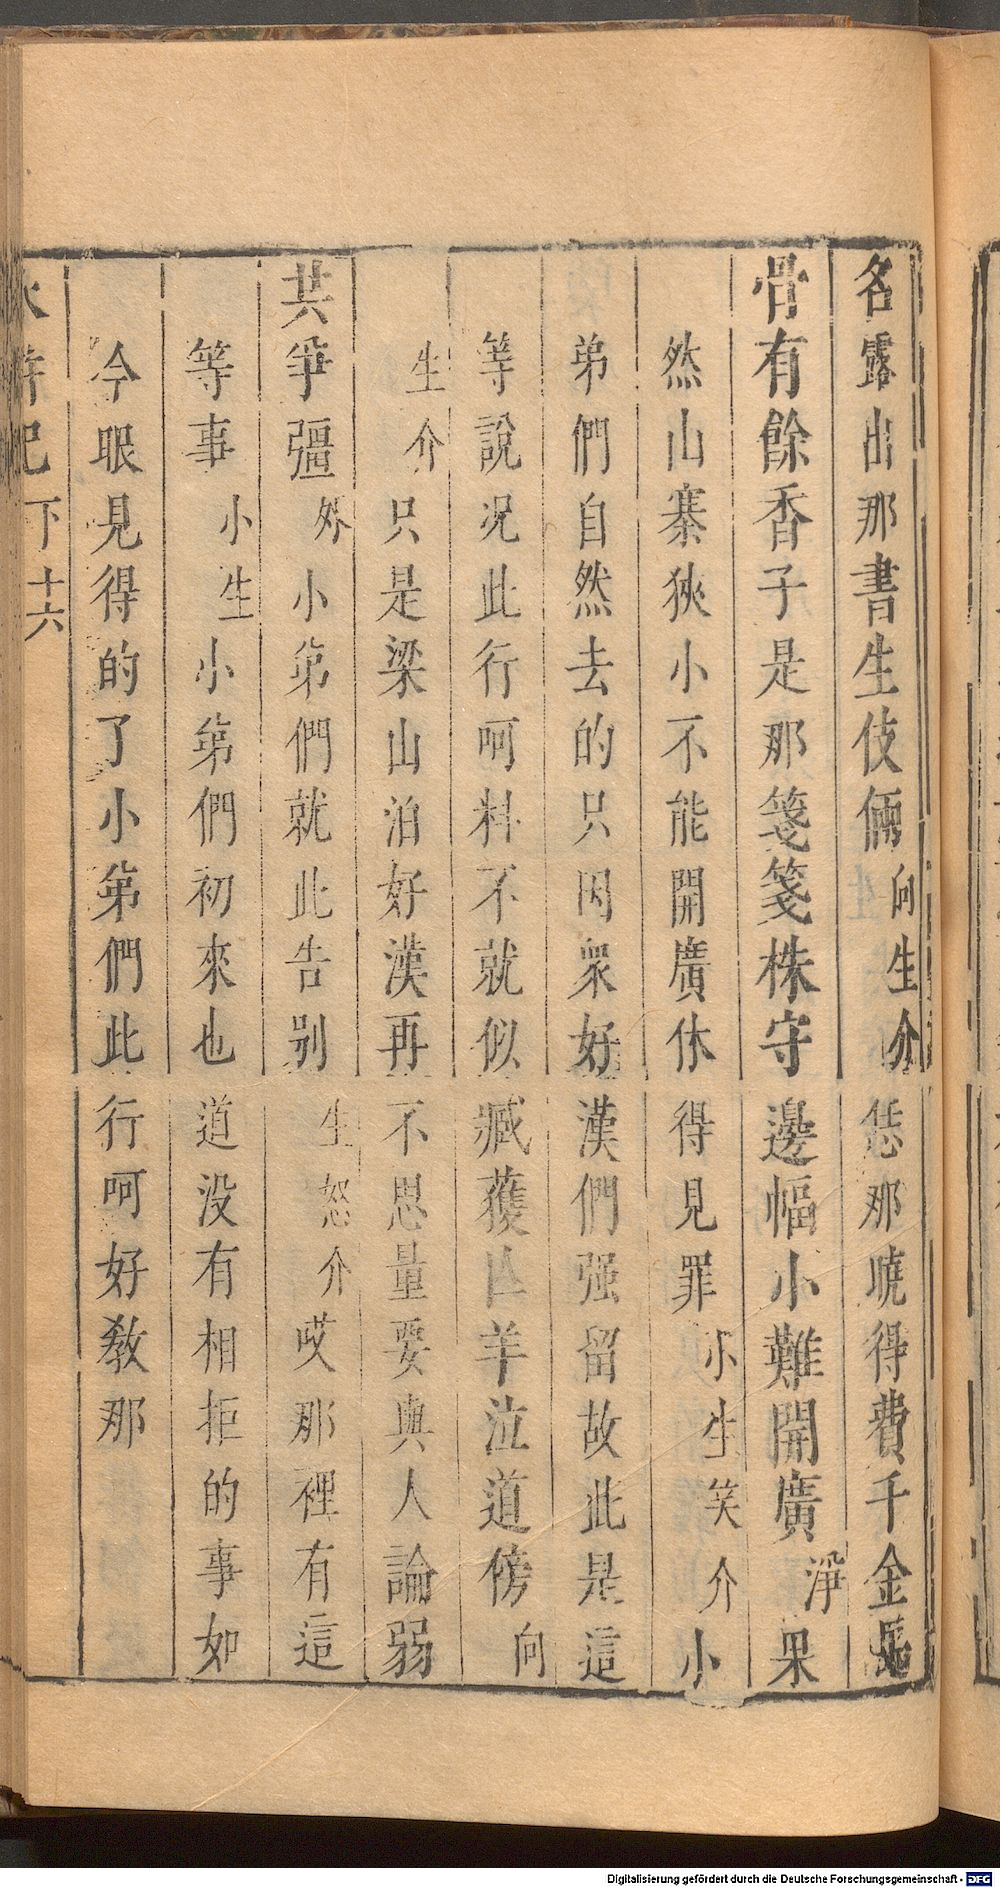 名露出那書生伎倆向生介恁那曉得費千金
骨有餘香子是那箋箋株守邊幅小難開廣淨果
然山寨狹小不能開廣休得見罪小生笑介小
弟們自然去的只因衆好漢們强留故此是這
等說况此行呵料不就似臧獲亡羊泣道傍向
生介只是梁山泊好漢再不思量要與人論弱
共爭彊外小弟們就此告别生怒介哎那裡有這
等事小生小弟們初來也道没有相拒的事如
今眼見得的了小弟們此行呵好教那
水滸記下十六
Digitalisierung gefördert durch die Deutsche Forschungsgemeinschaft - DFG